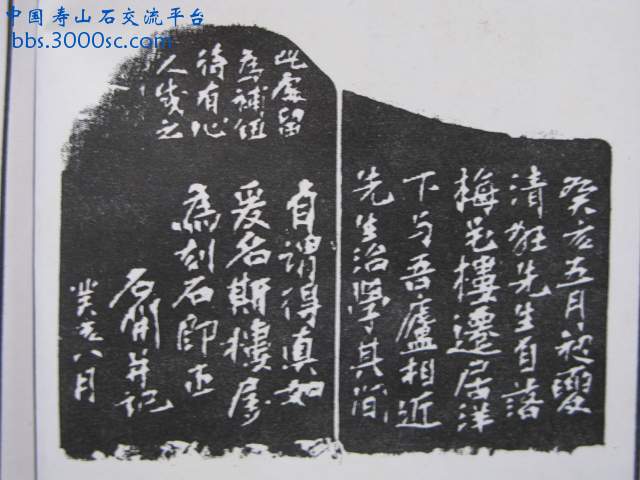 中国寿山石交流平台
bbs.3000sc.com
癸亥五月
清狂先生自落
梅花樓遷居洋
下与吾廬相近
先生治學其間
自謂得真如
爰名斯樓屬
為刻石即正
石開并記
癸亥八月
此處留
為補
待有心
人成之